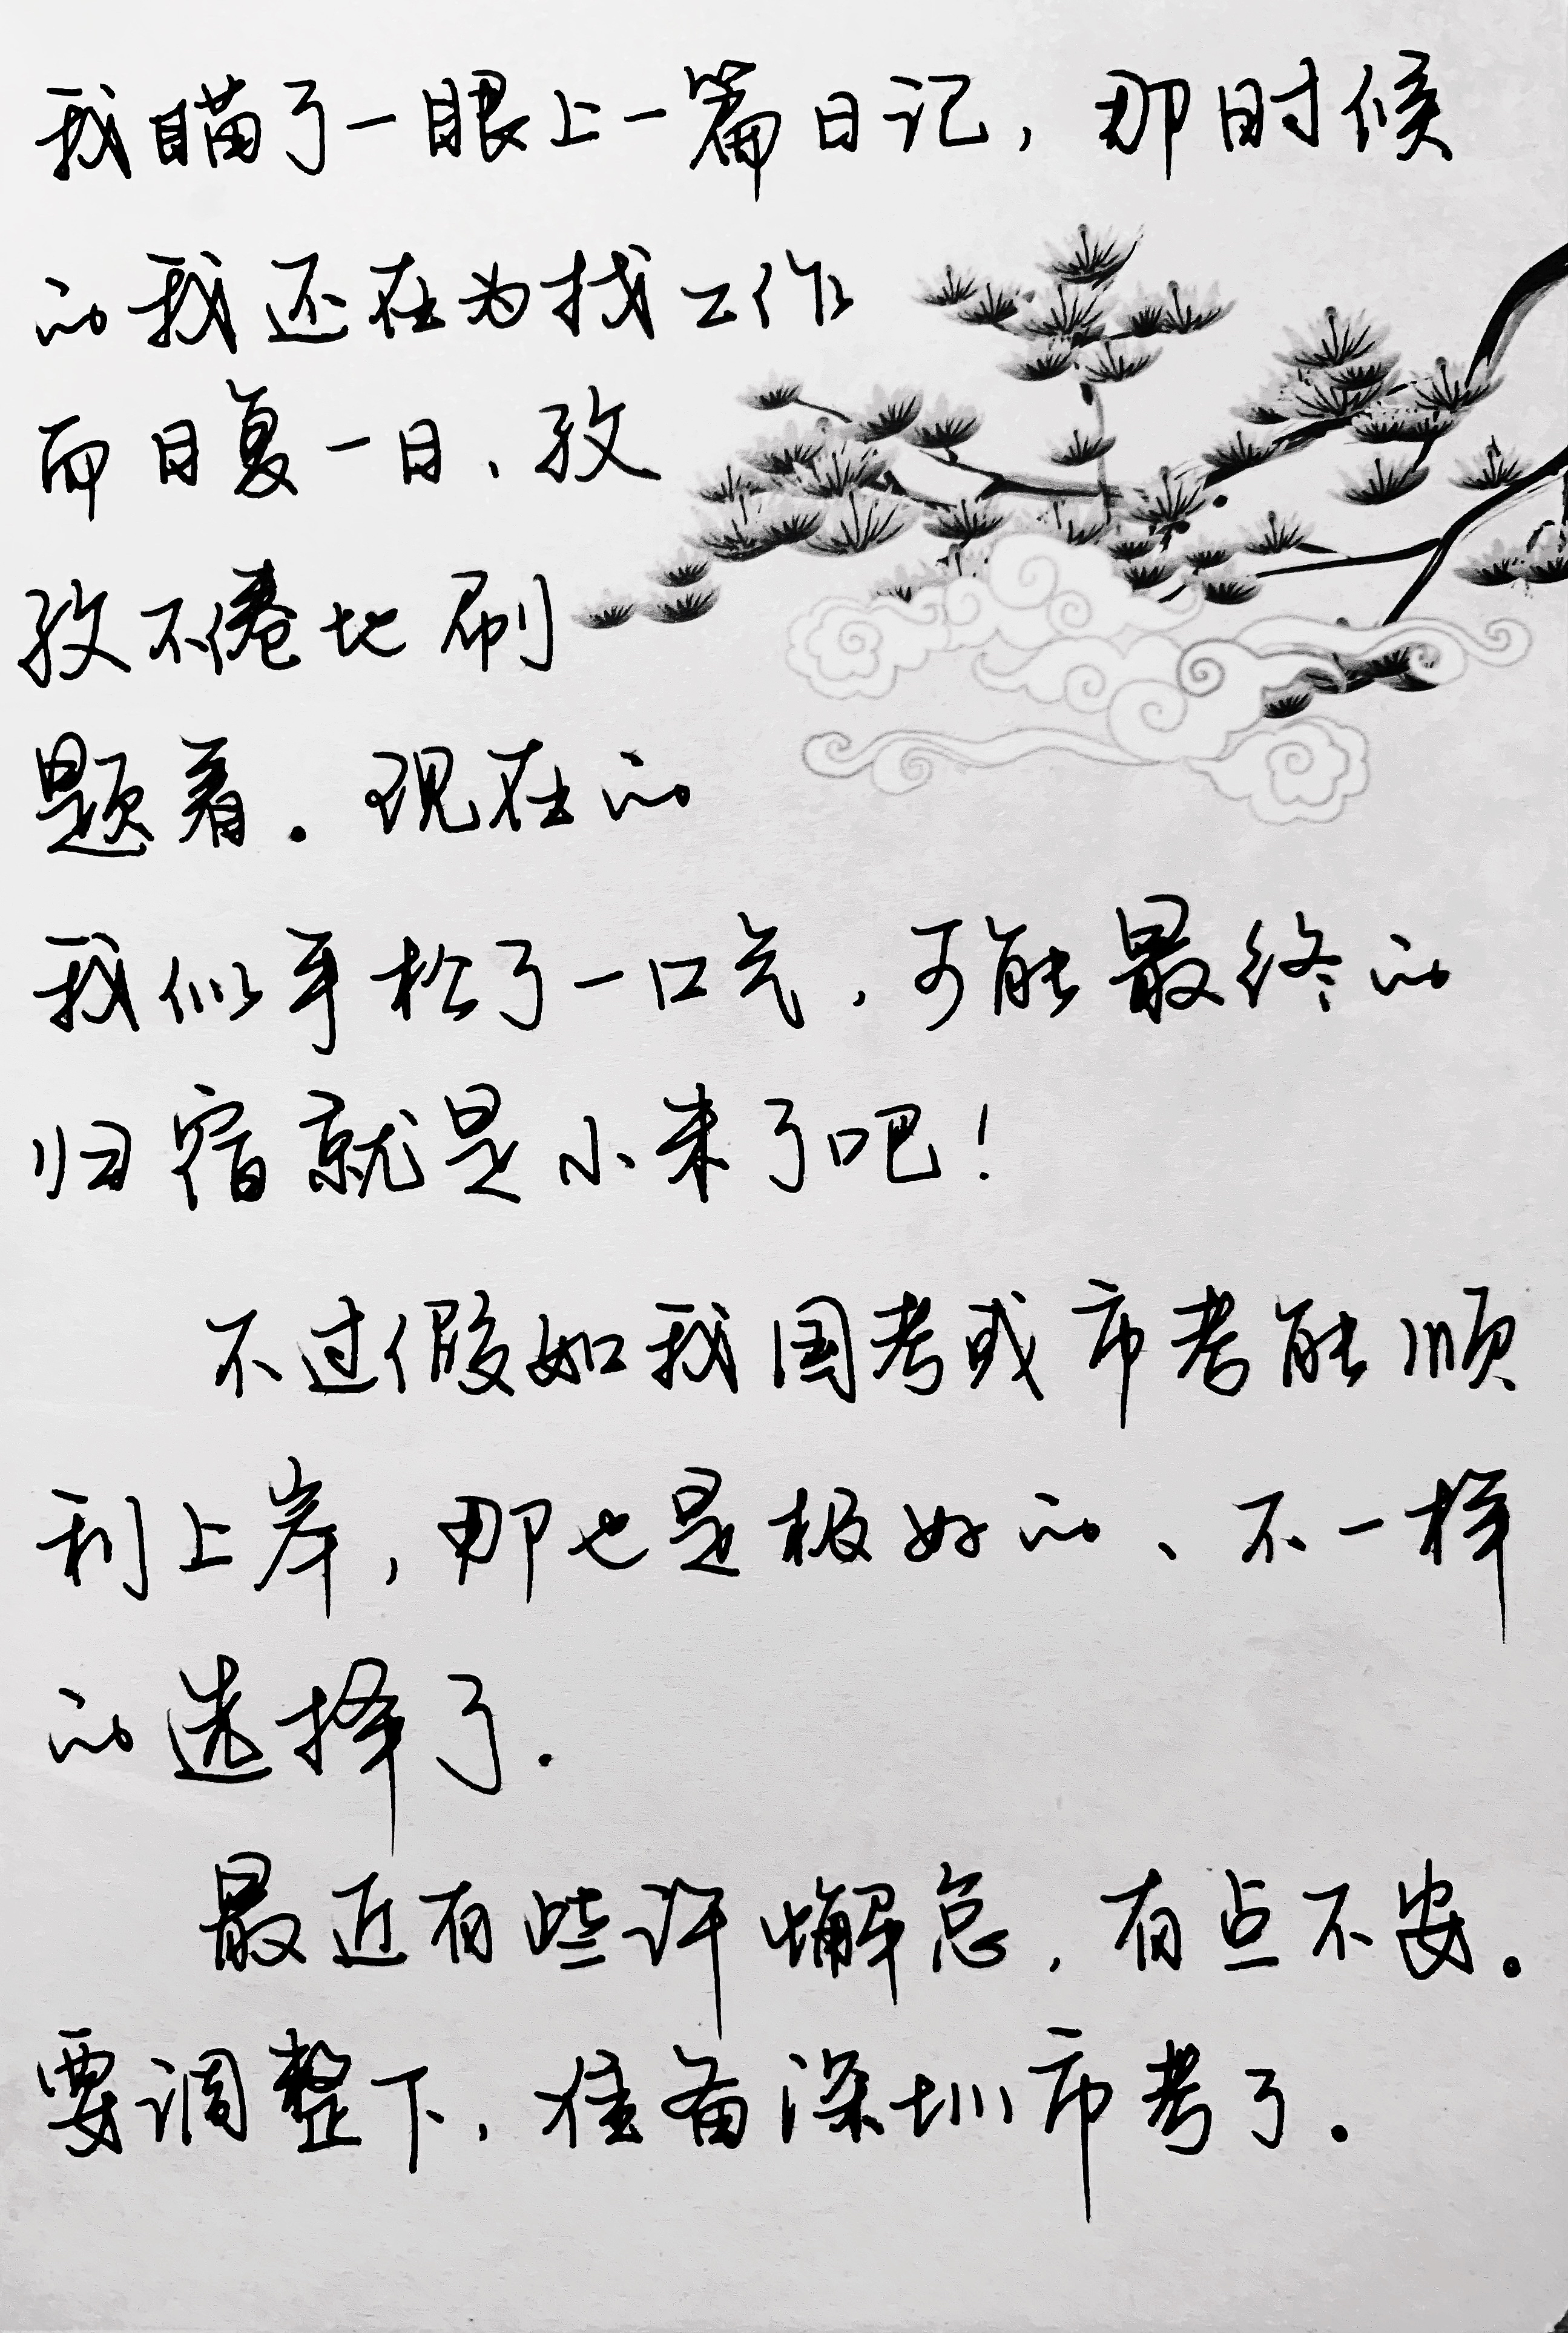 我瞄了一眼上一篇日记，那时候
的我还在为找工作
而日复一日、孜
孜不倦地刷
题着。现在的
我似乎松了一口气，可能最终的
归宿就是小米了吧！
不过假如我国考或市考能顺
利上岸，那也是极好的、不一样
的选择了.
最近有些许懈怠，有点不安。
要调整下，准备深圳市考了。